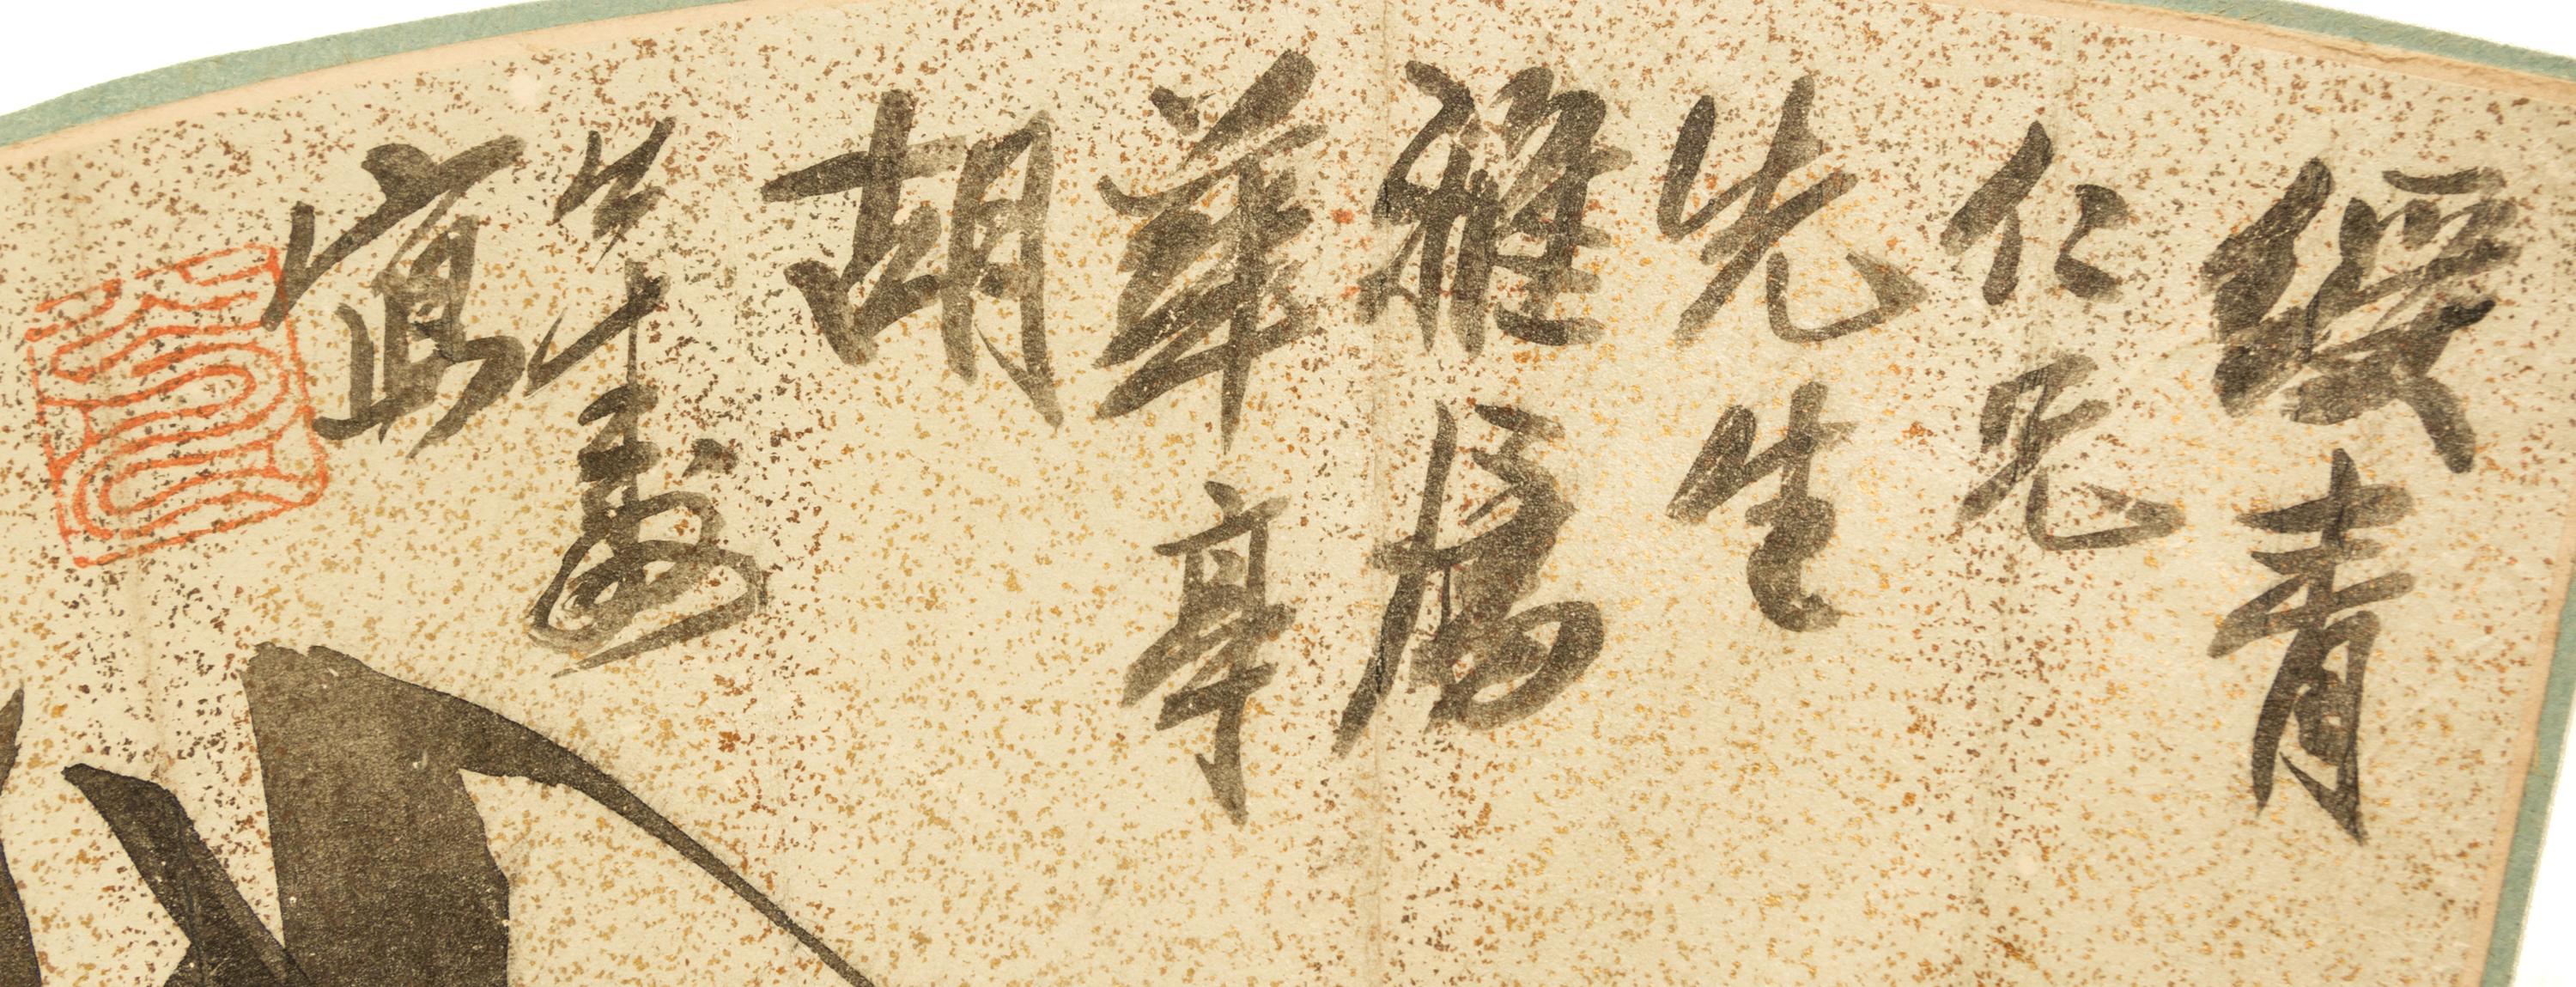 綬青
仁兄
先生
雅屬
華亭
胡
壽
寫